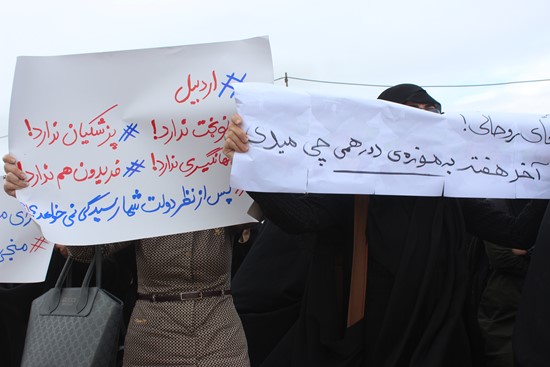 #اردبیل
#نوبخت ندارد!
#پزشکیان ندارد!
جهانگیری ندارد!
#فریدون هم ندارد!
پس از نظر دولت شما رسیدگی نمی خواهد
آقای روحانی!
آخر هفته به موزوی دورهمی چی میدی